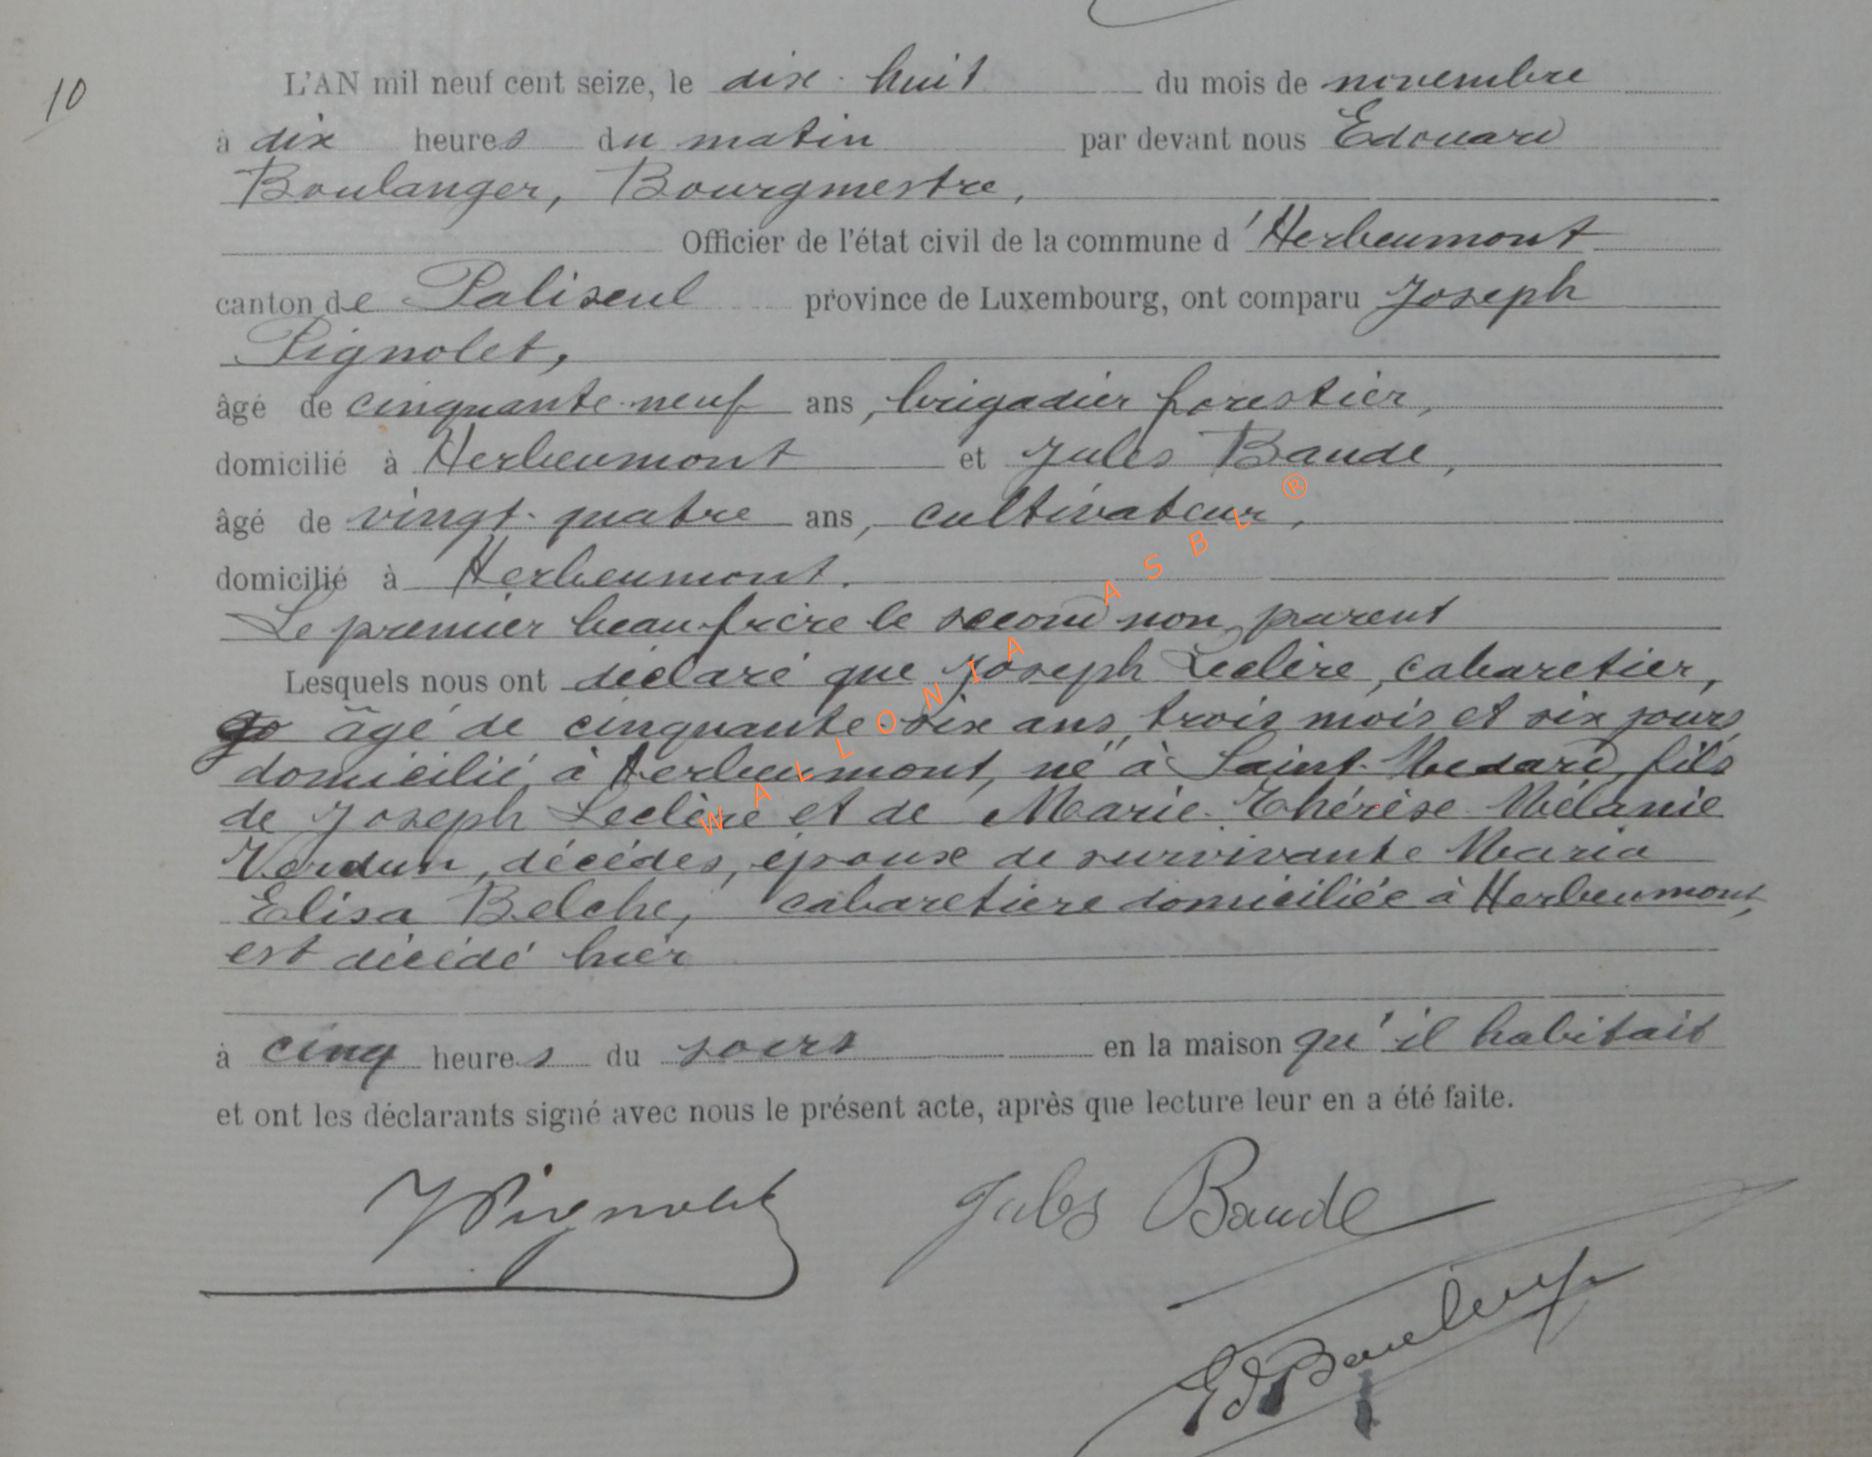 10
L'AN mil neuf cent seize, le dix-huit du mois de novembre
à dix heures du matin par devant nous Edouard
Boulanger, Bourgmestre,
Officier de l'état civil de la commune d'Herbeumont
canton de Paliseul province de Luxembourg, ont comparu Joseph
Pignolet,
âgé de cinquante-neuf ans, brigadier forestier,
domicilié à Herbeumont et Jules Baude,
âgé de vingt-quatre ans, cultivateur,
domicilié à Herbeumont.
Le premier beau-frère le second non parent
Lesquels nous ont déclaré que Joseph Leclère, cabaretier,
âgé de cinquante-six ans, trois mois et six jours
domicilié à Herbeumont, né à Saint-Médard, fils
de Joseph Leclère et de Marie-Thérèse-Mélanie
Verdun, décédés, époux de survivante Maria
Elisa Belche, cabaretière domiciliée à Herbeumont,
est décédé hier
à cinq heures du soirs en la maison qu'il habitait
et ont les déclarants signé avec nous le présent acte, après que lecture leur en a été faite.
J Pignolet Jules Baude
Ed Boulanger
WALLONIA ASBL ®